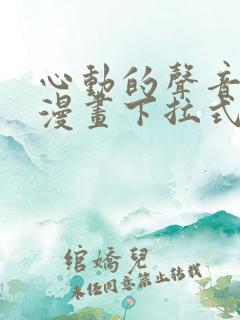 心動的聲音
漫畫下拉式
綰嬌兒
未经同意禁止转载